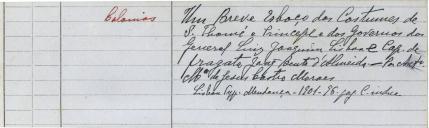 Colonias
Um Breve Esboço dos Costumes de
S. Thomé e Principe e dos Governos dos
General Luiz Joaquim Lisboa e Cap. de
fragata José Bento d'Almeida — Por Anto
Ma de Jesus Castro Moraes
Lisboa Typ. Mendonça - 1901 - 86. pag. e indice